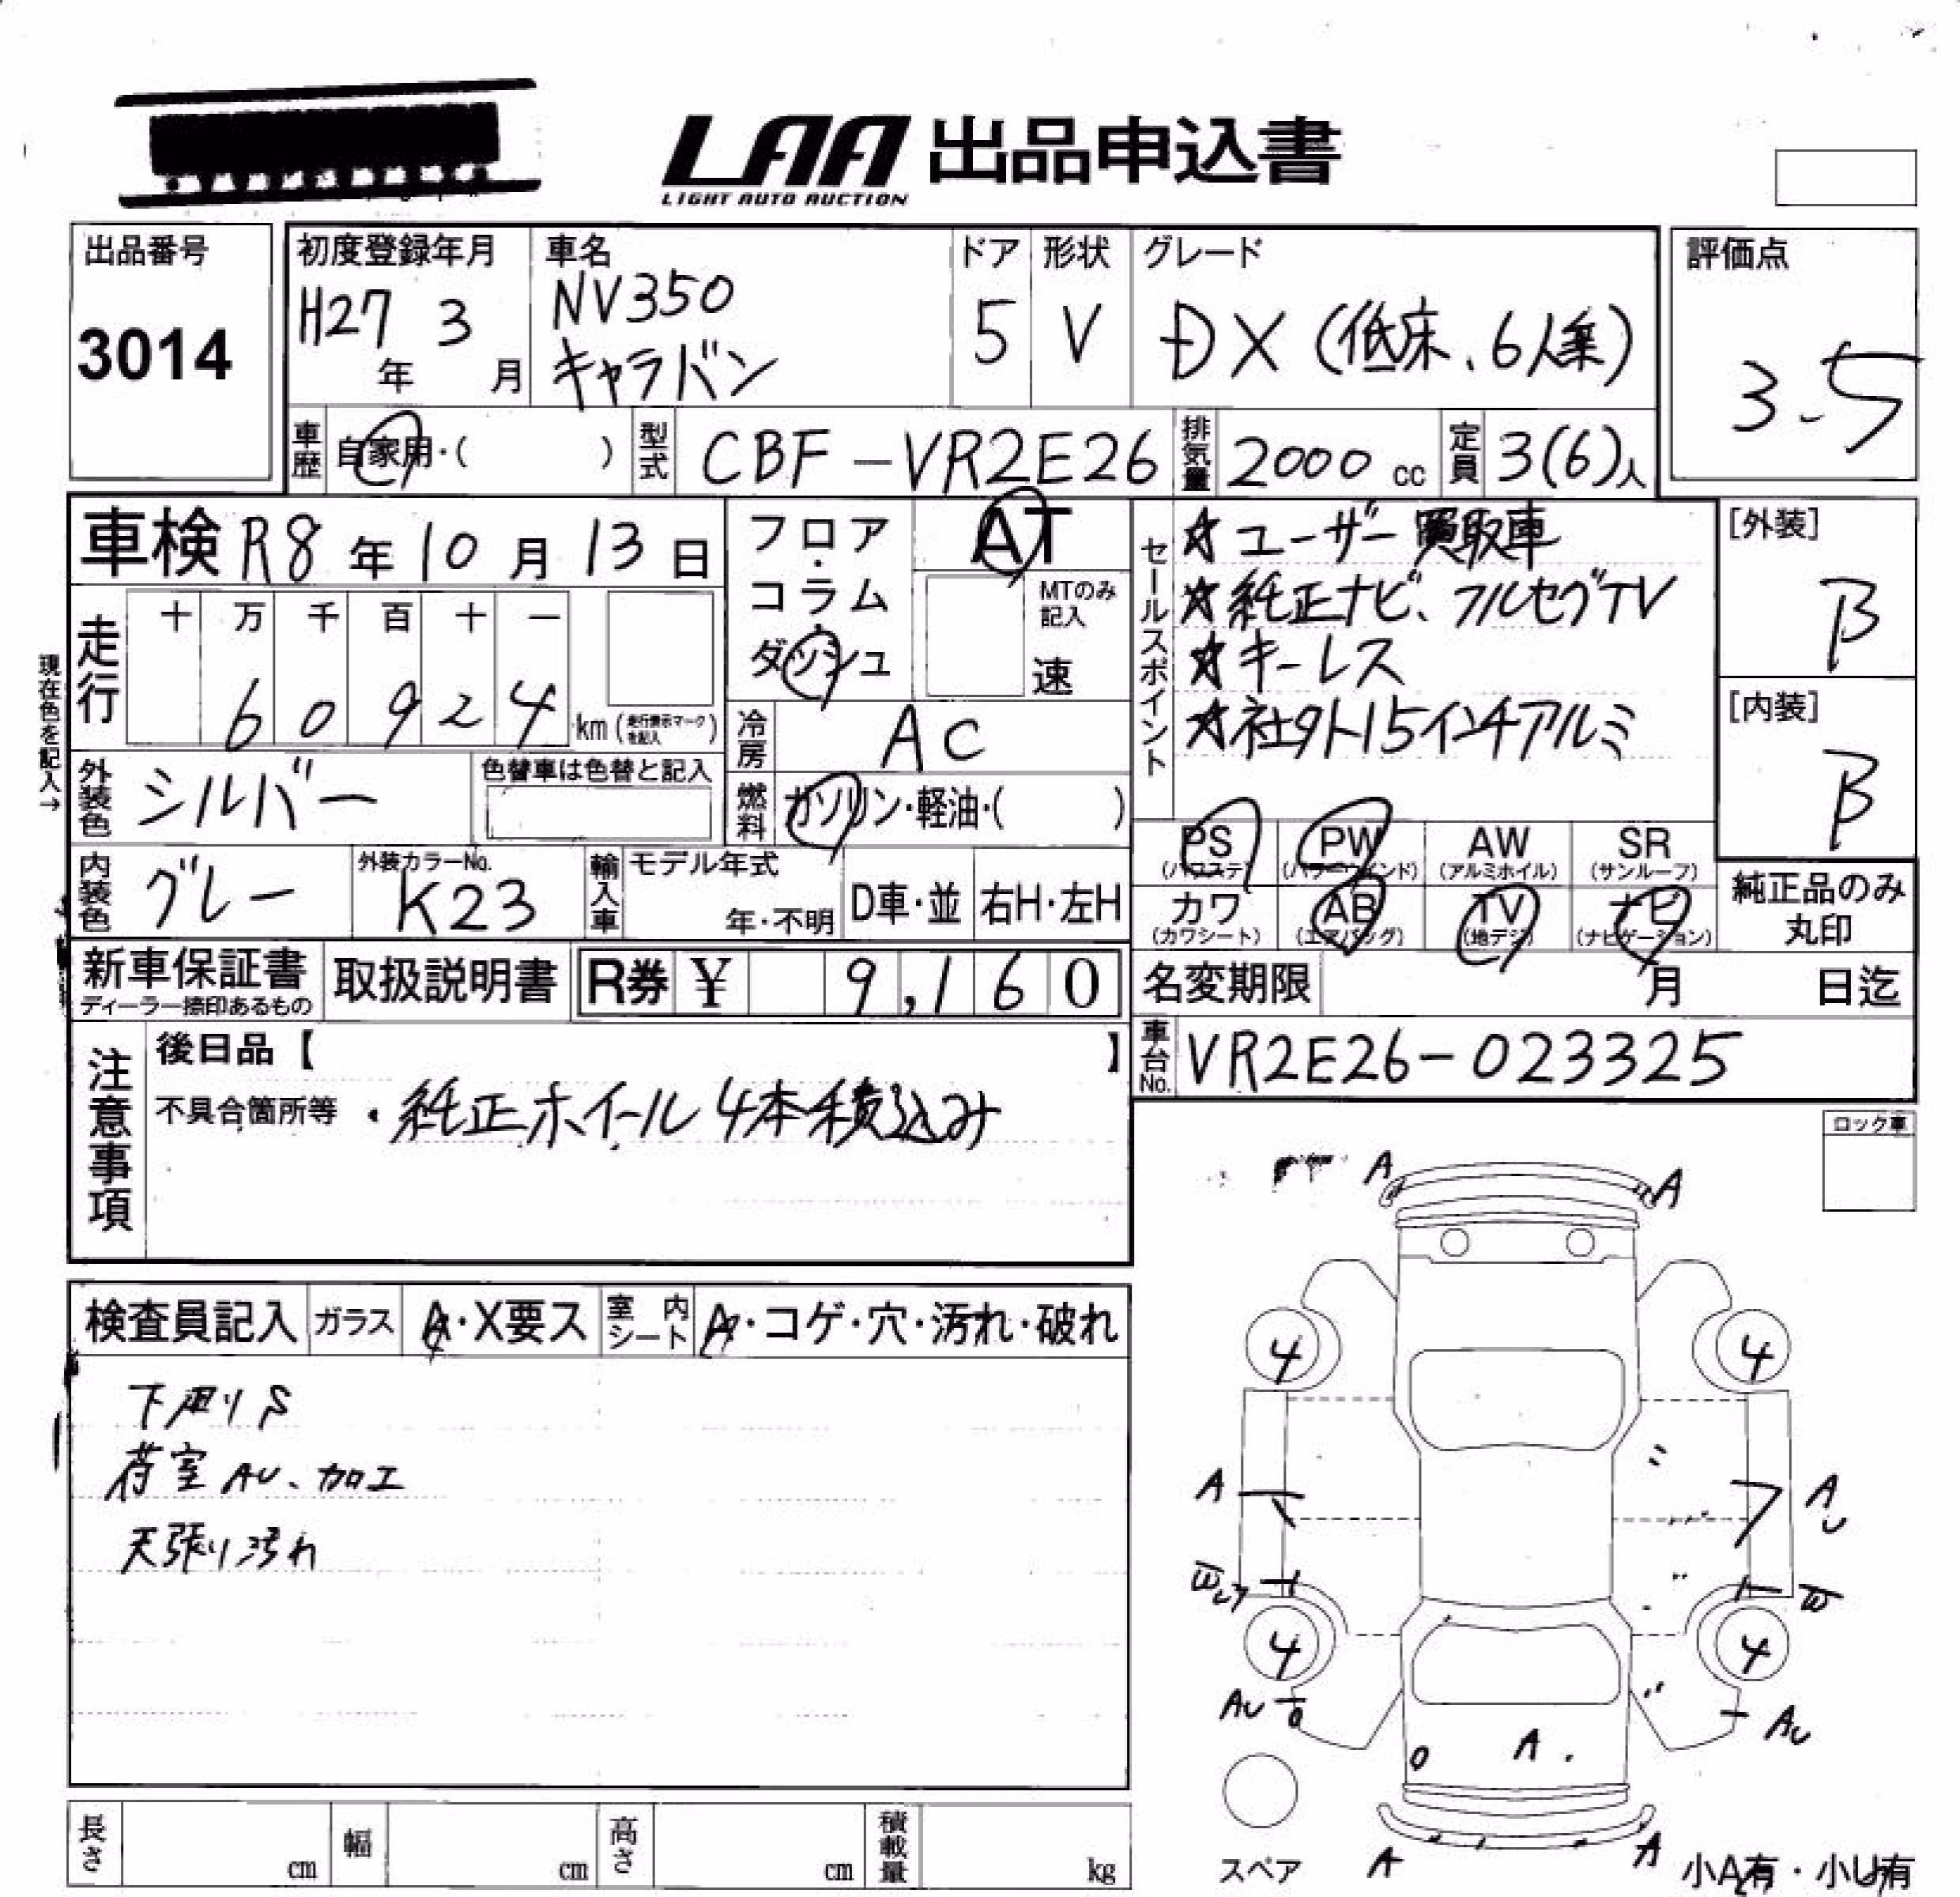 LAA 出品申込書
LIGHT AUTO AUCTION
出品番号
3014
初度登録年月
H27 年 3 月
車名
NV350
キャラバン
ドア
5
形状
V
グレード
DX (低床、6人乗)
評価点
3.5
車歴 自家用・( )
型式 CBF-VR2E26
排気量 2000 cc
定員 3(6)人
車検 R8年10月13日
フロア・コラム・ダッシュ
AT
MTのみ記入
速
セールスポイント
☆ユーザー買取車
☆純正ナビ、フルセグTV
☆キーレス
☆社外15インチアルミ
[外装]
B
[内装]
B
現在色を記入→
走行
十 万 千 百 十 一
6 0 9 2 4 km (走行表示マークを記入)
冷房 AC
燃料 ガソリン・軽油・( )
外装色 シルバー
色替車は色替と記入
内装色 グレー
外装カラーNo.
K23
輸入車
モデル年式
年・不明
D車・並
右H・左H
PS (パワステ)
PW (パワーウインド)
AW (アルミホイル)
SR (サンルーフ)
カワ (カワシート)
AB (エアバッグ)
TV (地デジ)
ナビ (ナビゲーション)
純正品のみ丸印
新車保証書
ディーラー捺印あるもの
取扱説明書
R券 ¥ 9,160
名変期限 月 日迄
車台No. VR2E26-023325
注意事項
後日品【 】
不具合箇所等 ・純正ホイール4本積込み
ロック車
検査員記入
ガラス A・X要ス
室内シート A・コゲ・穴・汚れ・破れ
下廻りS
荷室AU、加工
天張り汚れ
A A
4 4
A AU
W
4 4
AU AU
A
A A
スペア
小A有・小U有
長さ cm
幅 cm
高さ cm
積載量 kg